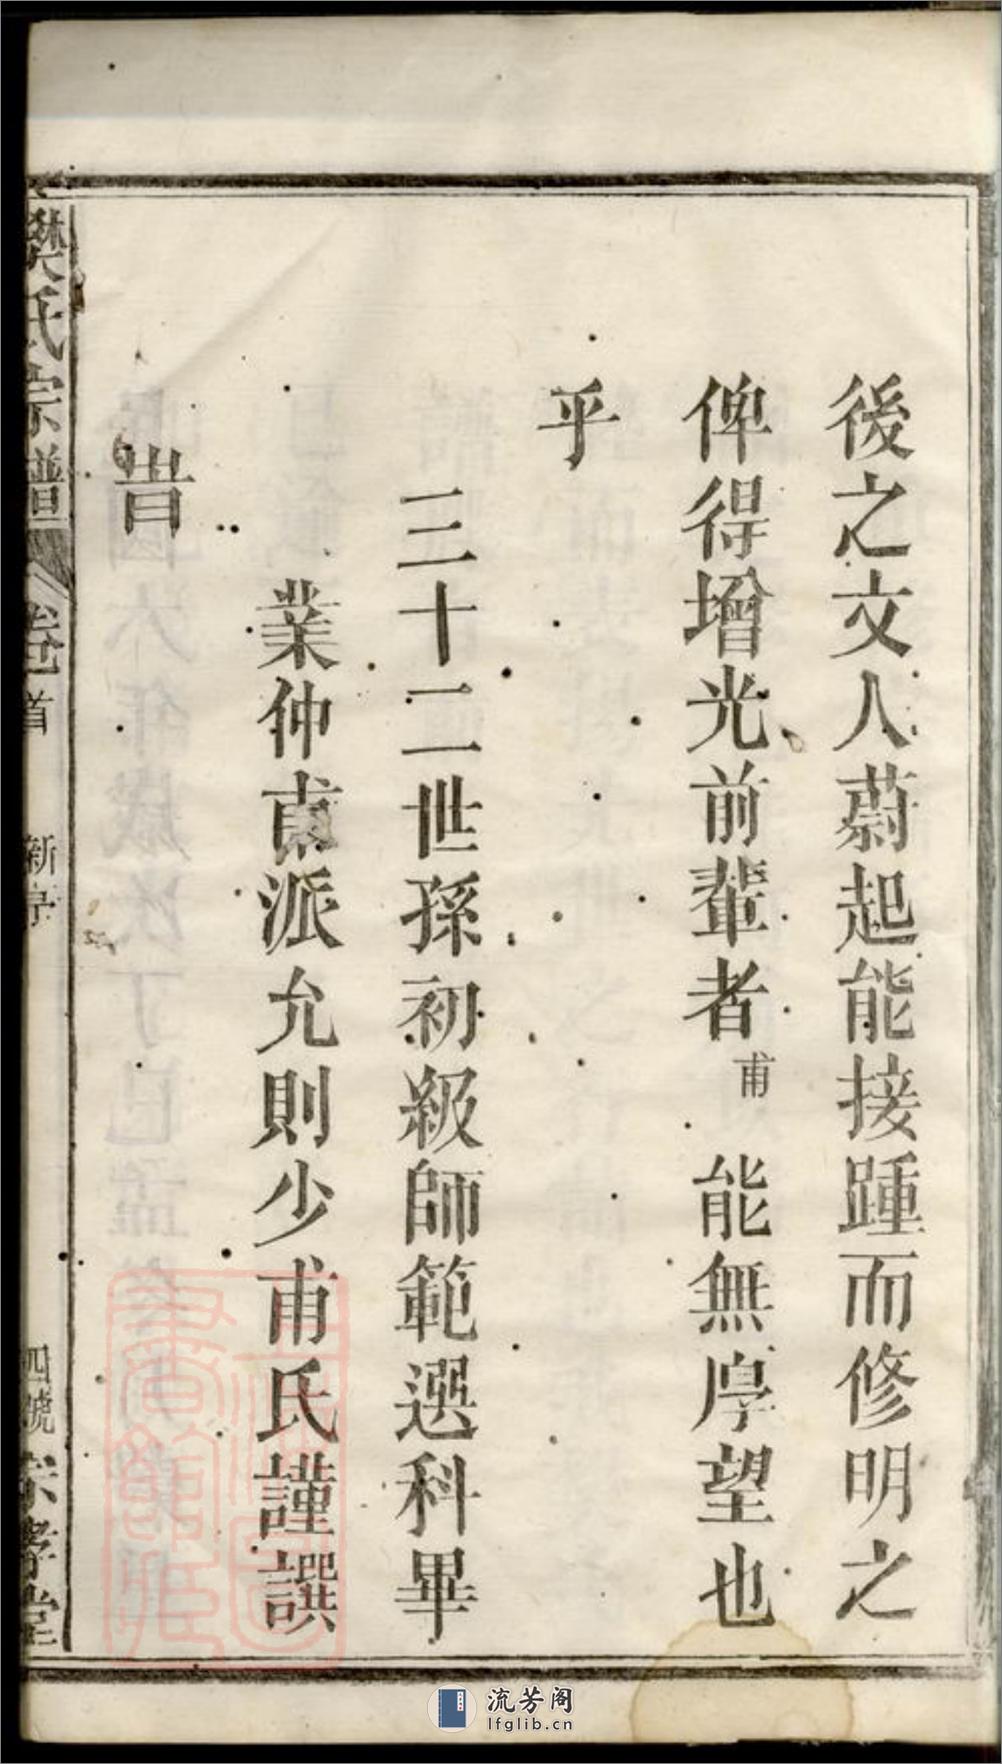 後之文人蔚起能接踵而修明之
俾得增光前輩者甫能無厚望也
乎
三十二世孫初級師範選科畢
業仲甫派允則少甫氏謹譔
昔
樊氏宗譜 卷首 新序 四號 宗孝堂
流芳阁
lfglib.cn